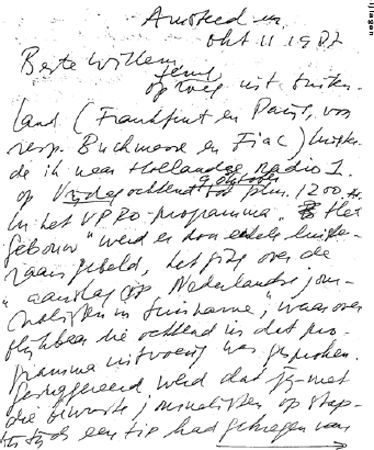 Amsterdam,
okt 11 1987
Beste Willem,
terug
op weg uit buiten-
land (Frankfurt en Parijs, voor
resp. Buchmesse en Fiac) luister-
de ik naar Hollandse radio 1.
op Vrijdagochtend tot plm. 1200
In het VPRO-programma "Het
gebouw" werd er door enkele luiste-
raars gebeld, het ging over de
"aanslag op Nederlandse jour-
nalisten in Suriname", waarover
blijkbaar die ochtend in dat pro-
gramma uitvoerig was gesproken.
Gesuggereerd werd dat jij met
die bewuste journalisten op stap
een tip had gekregen van
bijlagen